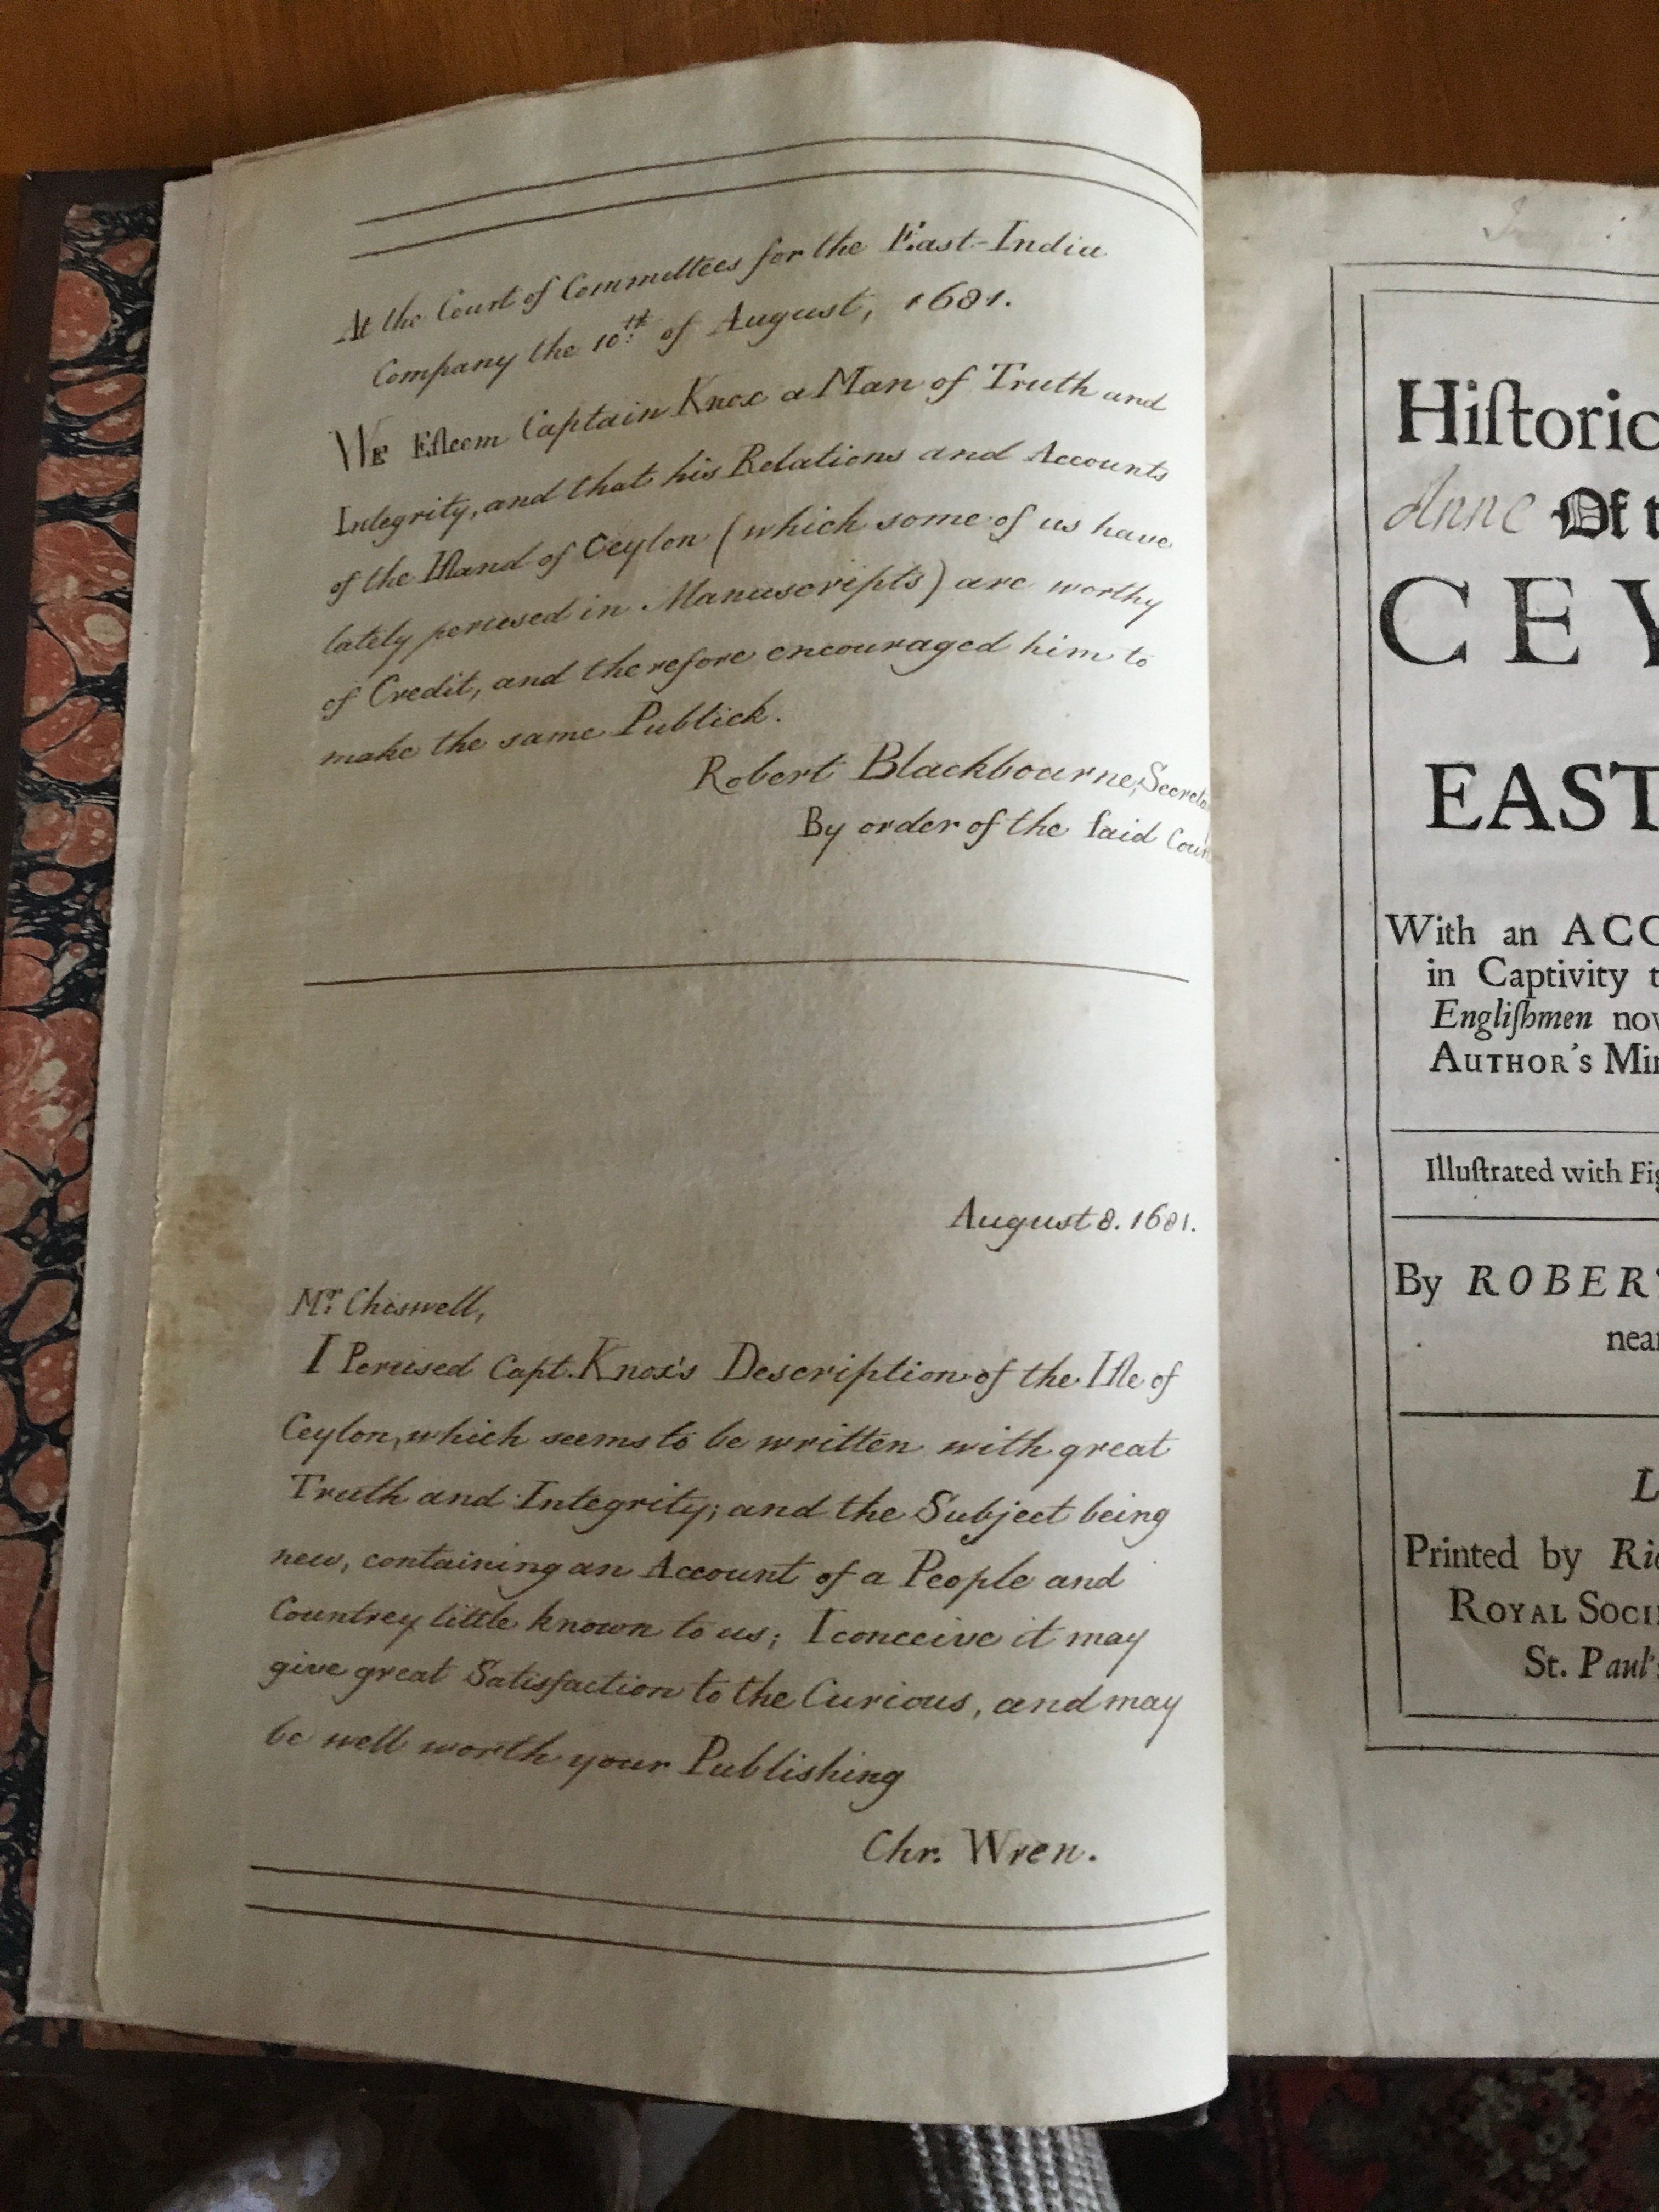 At the Court of Committees for the East-India
Company the 10th of August, 1681.
WE Esteem Captain Knox a Man of Truth and
Integrity, and that his Relations and Accounts
of the Island of Ceylon (which some of us have
lately perused in Manuscripts) are worthy
of Credit, and therefore encouraged him to
make the same Publick.
Robert Blackbourne, Secreta
By order of the said Cour
August 8. 1681.
Mr. Chiswell,
I Perused Capt. Knox's Description of the Isle of
Ceylon, which seems to be written with great
Truth and Integrity; and the Subject being
new, containing an Account of a People and
Countrey little known to us; I conceive it may
give great Satisfaction to the Curious, and may
be well worth your Publishing
Chr. Wren.
Hiſtoric
Anne Of t
CEY
EAST
With an ACC
in Captivity t
Engliſhmen nov
AUTHOR'S Mi
Illuſtrated with Fig
By ROBER
near
L
Printed by Ric
ROYAL SOCI
St. Paul's